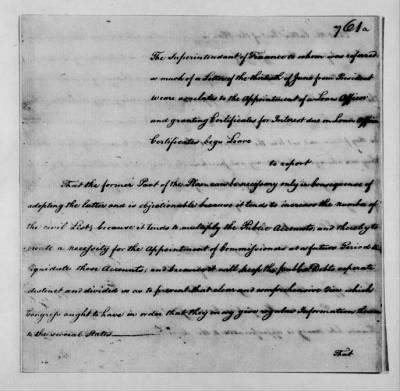 761a
The Superintendant of Finance to whom was referred
so much of a Letter of the thirtieth of June from President
Weare as relates to the Appointment of a Loan Officer
and granting Certificates for Interest due on Loan Office
Certificates begs Leave
to report
That the former Part of the Plan can be necessary only in consequence of
adopting the latter and is objectionable because it tends to increase the number of
the civil List; because it tends to multiply the Public Accounts, and thereby to
create a necessity for the Appointment of Commissioners at a future Period to
liquidate those Accounts; and because it will keep the public Debts seperate
distinct and divided so as to prevent that clear and comprehensive view which
Congress ought to have in order that they may give regular Information thereon
to the several States
That